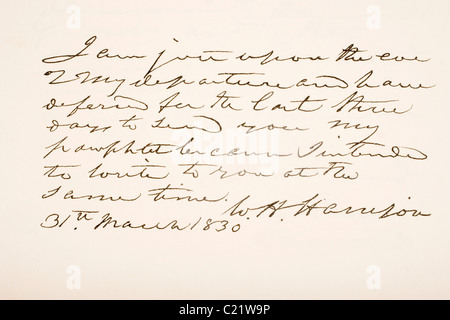 I am just upon the eve
of my departure and have
defered for the last three
days to send you my
pamphlet because I intended
to write to you at the
same time.
W. H. Harrison
31th. March 1830
alamy
Image ID: C21W9P
www.alamy.com